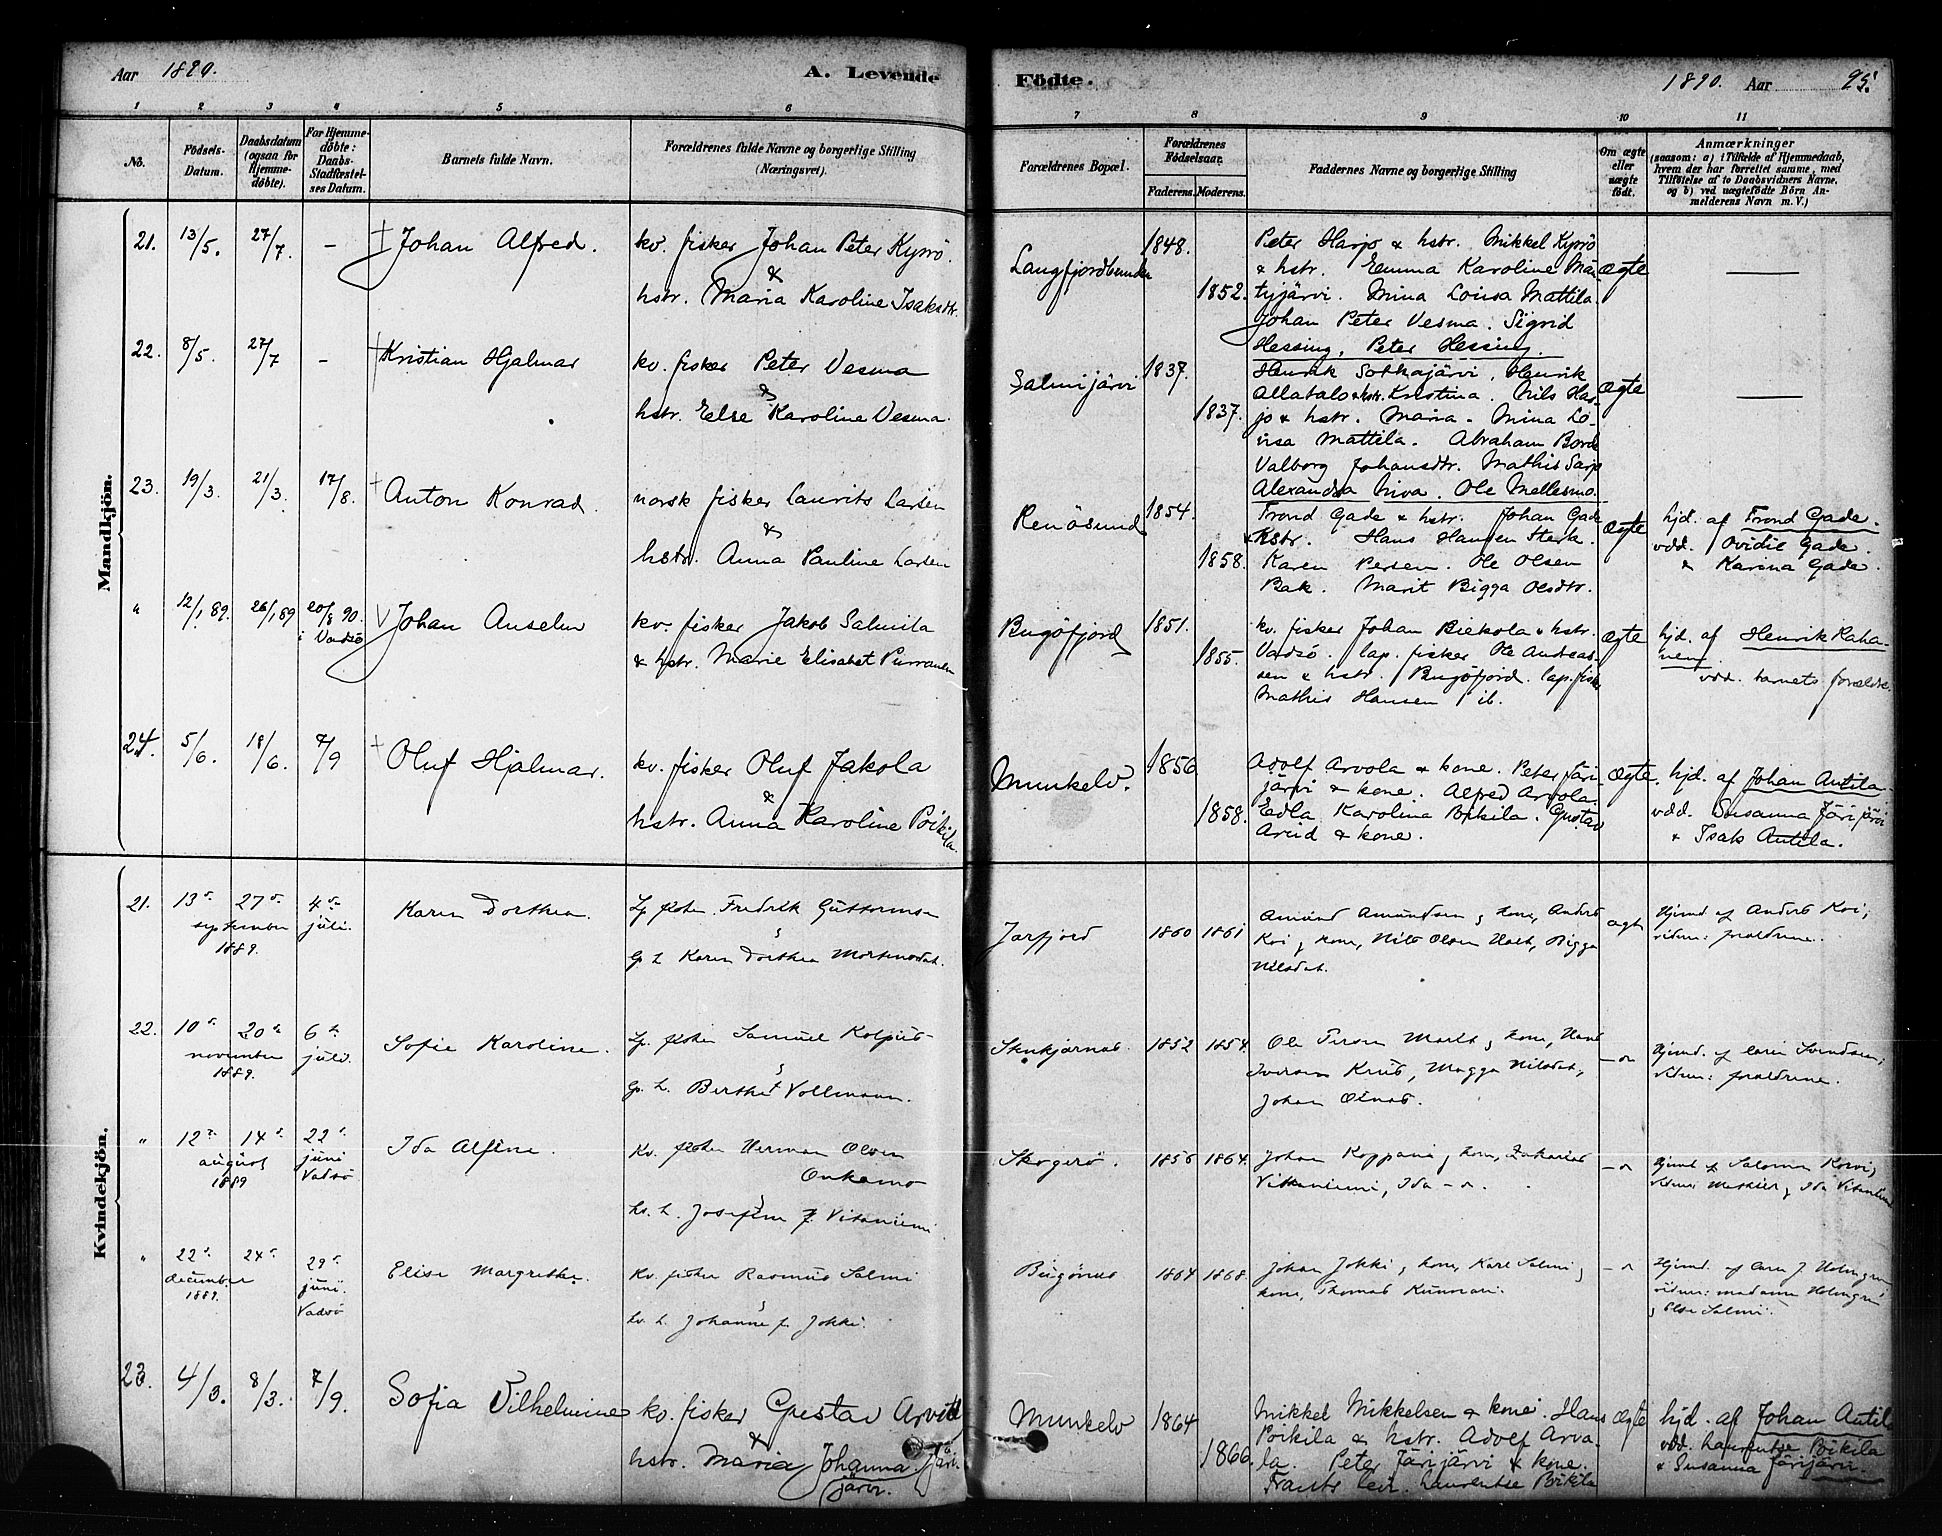 Aar 1890.
A. Levende Födte.
1890. Aar 95.
1 2 3 4 5 6 7 8 9 10 11
No.
Födsels-Datum.
Daabsdatum (ogsaa for Hjemme-döbte).
For Hjemme-döbte: Daabs-Stadfæstel-ses Datum.
Barnets fulde Navn.
Forældrenes fulde Navne og borgerlige Stilling (Næringsvei).
Forældrenes Bopæl.
Forældrenes Födselsaar.
Faderens. Moderens.
Faddernes Navne og borgerlige Stilling
Om ægte eller uægte födt.
Anmærkninger
(saasom: a) i Tilfælde af Hjemmedaab, hvem der har forrettet samme, med Tilföielse af to Daabsvidners Navne, og b) ved uægtefödte Börn An-melderens Navn m. V.)
Mandkjön.
21. 13/5. 27/7. – Johan Alfred.
kv. fisker Johan Peter Kyrö.
&
hstr. Maria Karoline Isaksdtr.
Langfjordbunden 1848. 1852.
Peter Harjo & hstr. Mikkel Kyrö
& hstr. Emma Karoline Mä-
tyjärvi. Mina Lovisa Mattila.
Johan Peter Vesma. Sigrid
Hessing, Peter Hessing.
ægte
22. 8/5. 27/7 – Kristian Hjalmar
kv. fisker Peter Vesma
&
hstr. Else Karoline Vesma.
Salmijärvi 1837. 1837.
Henrik Sotkajärvi, Henrik
Allatalo & hstr. Kristina. Nils Har-
jo & hstr. Maria. Mina Lo-
visa Mattila. Abraham Bord
Valborg Johansdtr. Mathis Sarp
Alexandra Niva. Ole Mellesmo.
ægte
23. 19/3. 21/3. 17/8. Anton Konrad.
norsk fisker Laurits Larsen
&
hstr. Anna Pauline Larsen
Renösund 1854. 1858.
Trond Gade & hstr. Johan Gade
& hstr. Hans Hansen Sterk.
Karen Persen. Ole Olsen
Bak. Marit Bigga Olsdtr.
ægte
hjd. af Trond Gade.
vdd. Ovidie Gade.
& Karina Gade.
" 12/1 89. 26/1 89 20/8 90. i Vadsö Johan Anselm
kv. fisker Jakob Salmila
& hstr. Marie Elisabet Purranen
Bugöfjord 1851. 1855.
kv. fisker Johan Biekola & hstr.
Vadsö. lap. fisker Ole Andreas-
sen & hstr. Bugöfjord. lap. fisk.
Mathis Hansen ib.
ægte
hjd. af Henrik Raha-
nen.
vdd. barnets forældre.
24. 5/6. 18/6. 7/9 Oluf Hjalmar.
kv. fisker Oluf Jakola
&
hstr. Anna Karoline Poikila.
Munkelv. 1856 1858.
Adolf Arvola & kone. Peter Järi-
järvi & kone. Alfred Arvola.
Edla Karolina Poikila. Gustav
Arvid & kone.
Ægte.
hjd. af Johan Antila.
vdd. Susanna Järijärvi
& Isak Antila.
Kvindekjön.
21. 13de 27de september 1889. 4de juli. Karen Dorthea.
Lp. fisker Fredrik Guttormsen
&
Karen Dorthea Mortensdat.
Jarfjord 1860 1861
Amund Amundsen & kone, Anders
Koi & kone, Nils Olsen Halt, Bigga
Nilsdat.
ægte
Hjemd. af Anders Koi;
vidner: forældrene.
22. 10de 20de november 1889. 6te juli. Sofie Karoline.
Lp. fisker Samuel Kolpus
&
Berthet Vollmann.
1852 1854
Ole Person Marlt & kone, Hans
Iversen Knut, Magga Nilsdat,
Johan
Hjemd. af Svendsen;
vidner: forældrene.
" 12te 14de august 1889 22de juni Vadsö Ida Alfine.
Kv. fisker Herman Olsen
Onkamo
&
Josefine f. Vitaniemi
Skogerö. 1856 1864.
Johan Koppana & kone, Zakarias
Vitaniemi, Ida
Hjemd. af Salomon Koivi;
vidner & Ida Vitaniemi
" 22de 24de december 1889. 29de juni. Vadsö Elise Margrethe.
Kv. fisker Rasmus Salmi
&
Johanne f. Jokki.
Bugönes 1864 1868.
Johan Jokki & kone, Karl Salmi &
kone, Thomas Kunnari.
Hjemd. af J. Holmgren
vidner: madame Holmgren
& Else Salmi.
23. 4/3. 8/3. 7/9. Sofia Vilhelmine
kv. fisker Gustav Arvid
&
hstr. Maria Johanna Järi-
järvi.
Munkelv 1864 1866.
Mikkel Mikkelsen & kone. Hans
Poikila & hstr. Adolf Arvo-
la. Peter Järijärvi & kone.
Frants Laurentse Poikila
ægte
hjd. af Johan Antila
vdd. Laurentse Poikila
& Susanna Järijärvi.